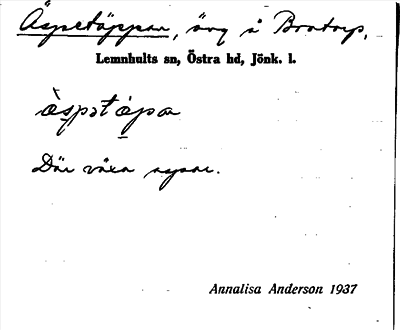 Äspetäppan, äng i Bratorp,
Lemnhults sn, Östra hd, Jönk. l.
æ̀spətæpa
Där växa aspar.
Annalisa Anderson 1937